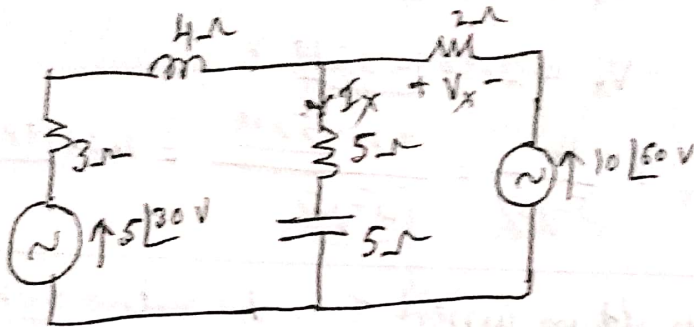 4Ω
2Ω
Ix + Vx -
3Ω
5Ω
~ ↑5∠30 V
~ ↑10∠60 V
5Ω